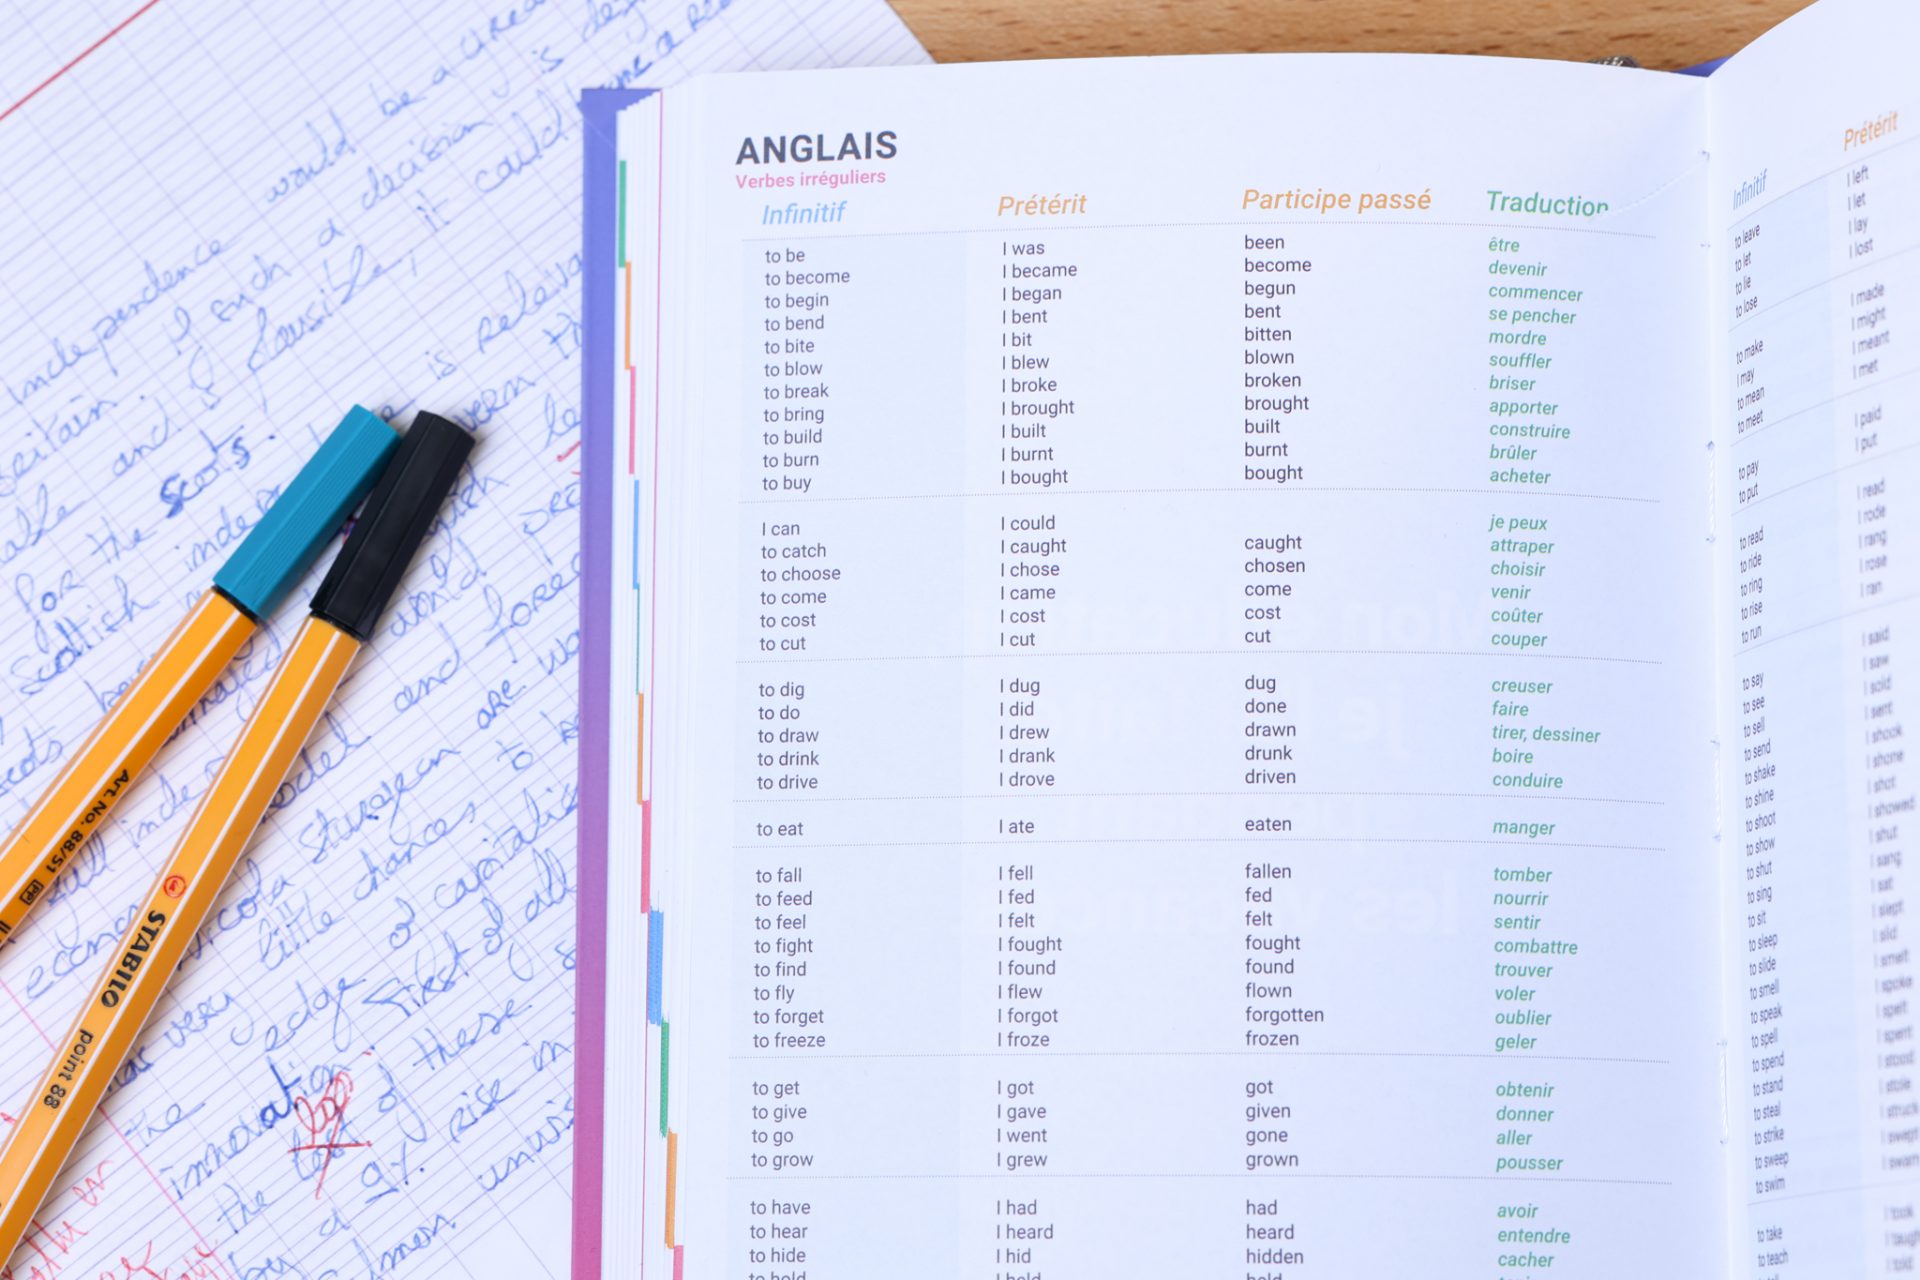 would be a
decision is
such a it could
independence
and is plausible,
is
for the Scots.
Scottish
world
and
are
sturgeon
to
little chances
of capitalis
very
edge First of all
the of these
innovation
the
rise in
by a 9%
Art. No. 88/51
STABILO
point 88
ANGLAIS
Verbes irréguliers
Infinitif Prétérit Participe passé Traduction
to be I was been être
to become I became become devenir
to begin I began begun commencer
to bend I bent bent se pencher
to bite I bit bitten mordre
to blow I blew blown souffler
to break I broke broken briser
to bring I brought brought apporter
to build I built built construire
to burn I burnt burnt brûler
to buy I bought bought acheter
I can I could je peux
to catch I caught caught attraper
to choose I chose chosen choisir
to come I came come venir
to cost I cost cost coûter
to cut I cut cut couper
to dig I dug dug creuser
to do I did done faire
to draw I drew drawn tirer, dessiner
to drink I drank drunk boire
to drive I drove driven conduire
to eat I ate eaten manger
to fall I fell fallen tomber
to feed I fed fed nourrir
to feel I felt felt sentir
to fight I fought fought combattre
to find I found found trouver
to fly I flew flown voler
to forget I forgot forgotten oublier
to freeze I froze frozen geler
to get I got got obtenir
to give I gave given donner
to go I went gone aller
to grow I grew grown pousser
to have I had had avoir
to hear I heard heard entendre
to hide I hid hidden cacher
to hold I held held
Infinitif Prétérit
to leave I left
to let I let
to lie I lay
to lose I lost
to make I made
I may I might
to mean I meant
to meet I met
to pay I paid
to put I put
to read I read
to ride I rode
to ring I rang
to rise I rose
to run I ran
to say I said
to see I saw
to sell I sold
to send I sent
to shake I shook
to shine I shone
to shoot I shot
to show I showed
to shut I shut
to sing I sang
to sit I sat
to sleep I slept
to slide I slid
to smell I smelt
to speak I spoke
to spell I spelt
to spend I spent
to stand I stood
to steal I stole
to strike I struck
to sweep I swept
to swim I swam
to take I took
to teach I taught